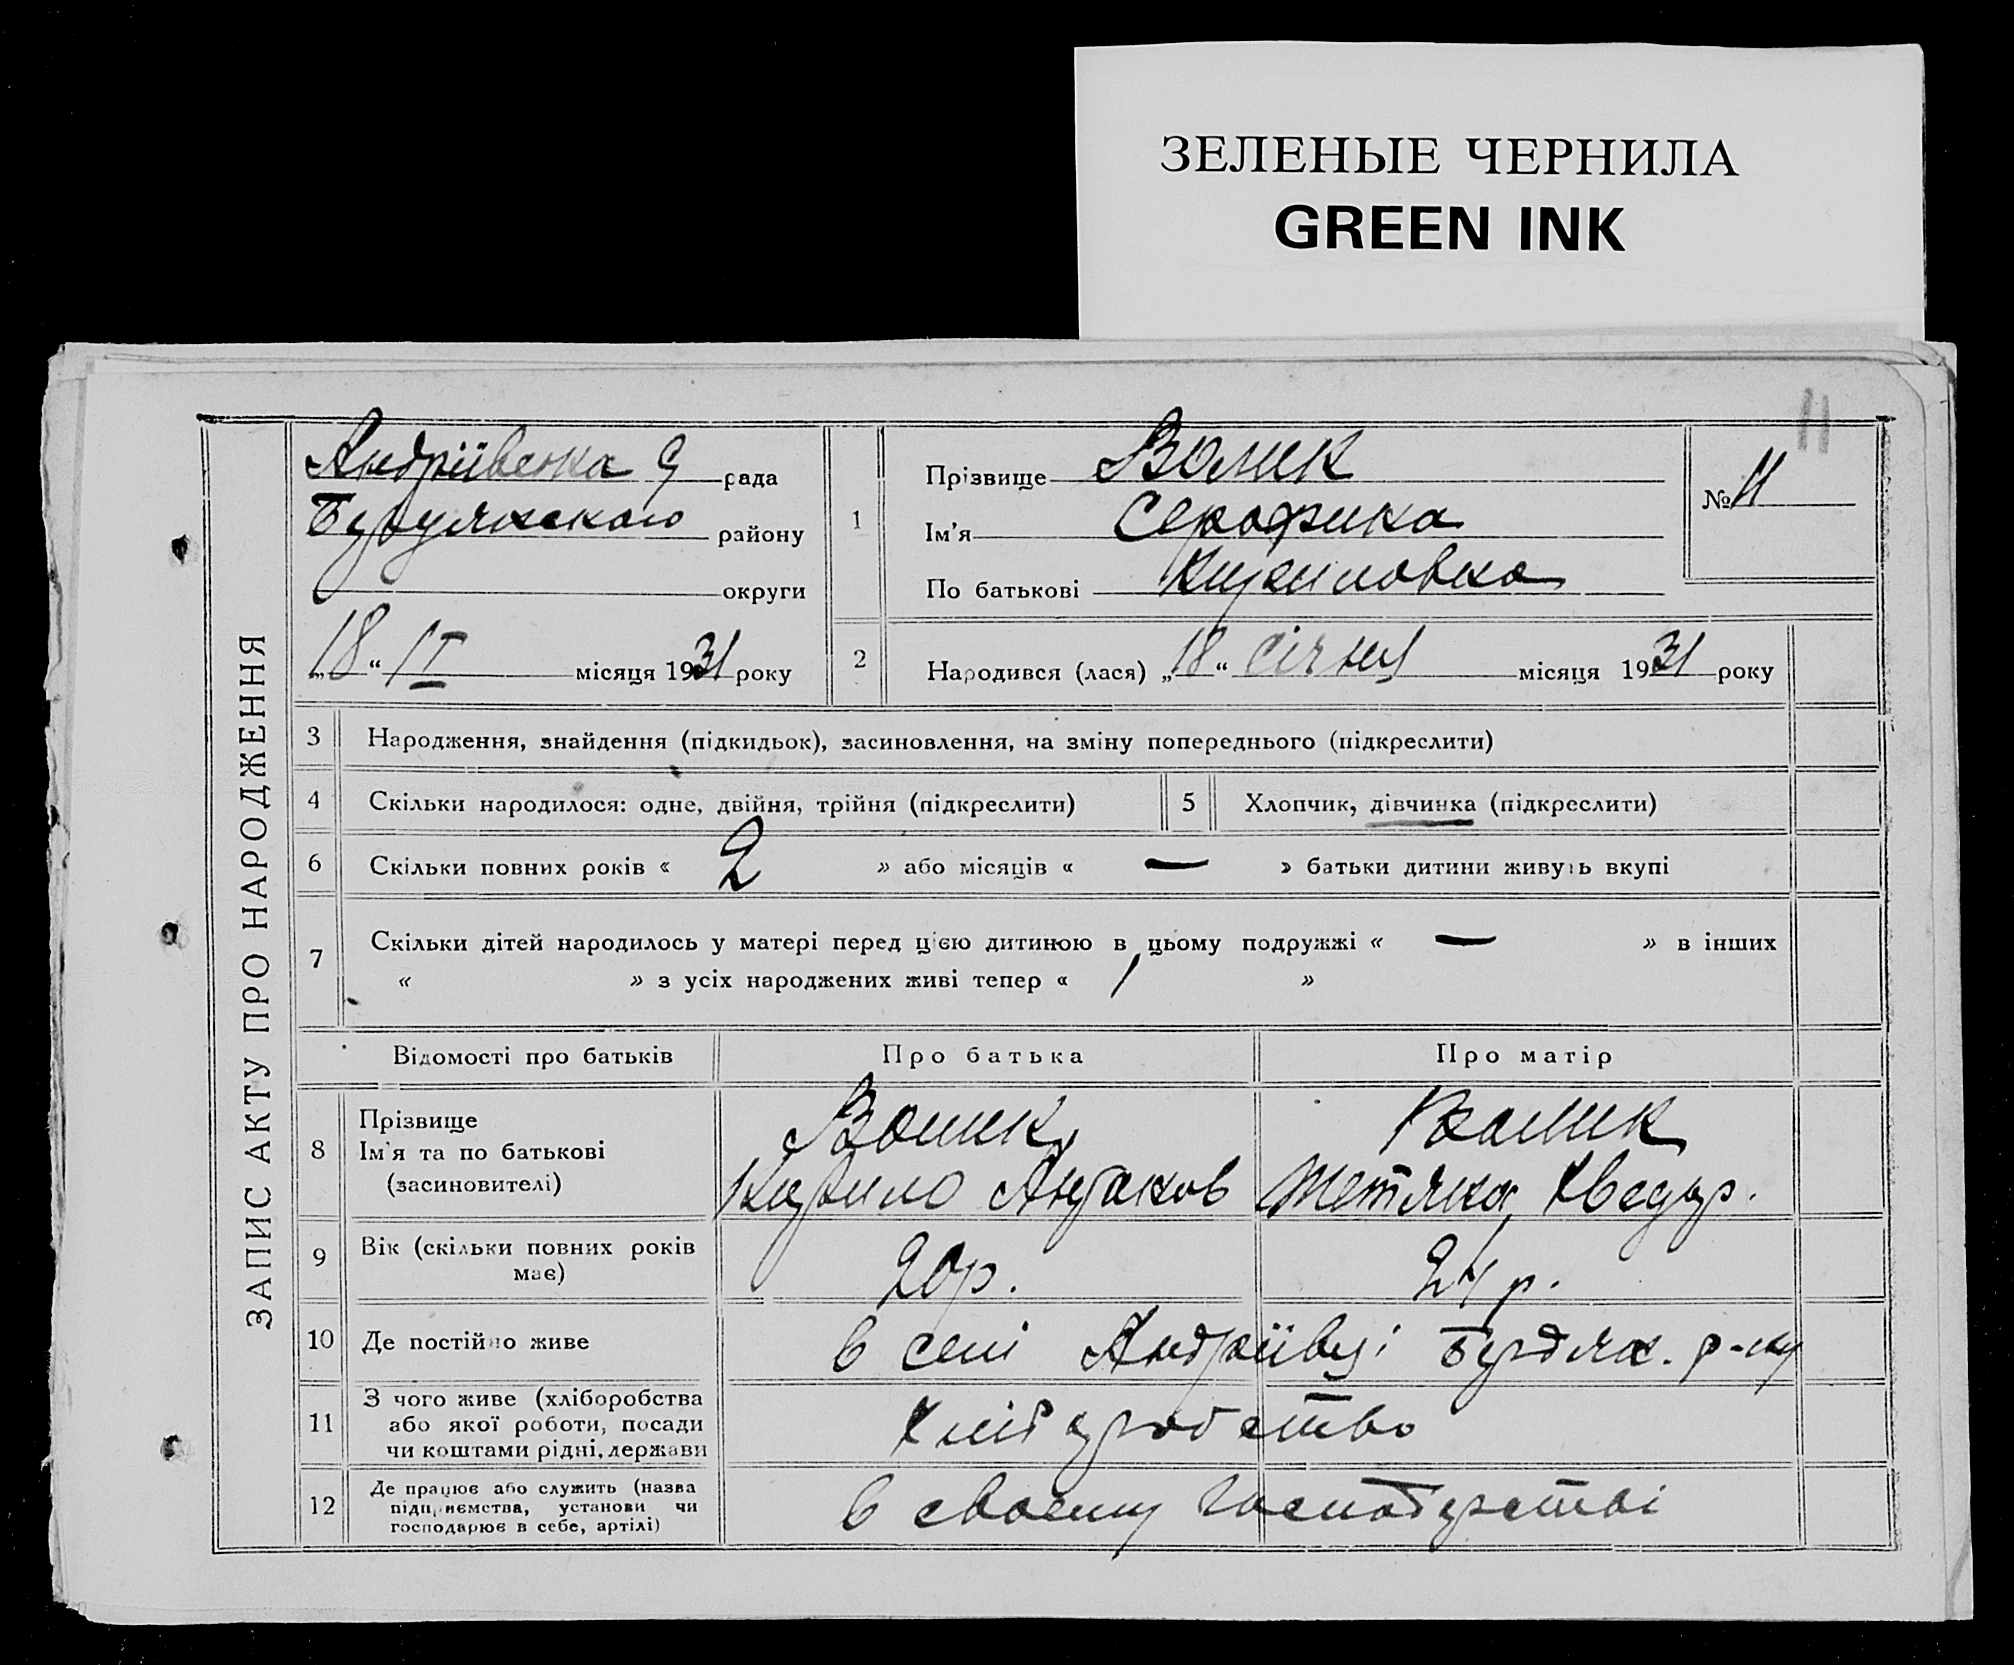 ЗЕЛЕНЫЕ ЧЕРНИЛА
GREEN INK
11
ЗАПИС АКТУ ПРО НАРОДЖЕННЯ
Андріївська С рада
району
округи
„18“ ІІ місяця 1931 року
1
Прізвище Волик
Ім'я Серафима
По батькові Кириловна
№ 11
2
Народився (лася) „18“ січня місяця 1931 року
3 Народження, знайдення (підкидьок), засиновлення, на зміну попереднього (підкреслити)
4 Скільки народилося: одне, двійня, трійня (підкреслити)
5 Хлопчик, дівчинка (підкреслити)
6 Скільки повних років « 2 » або місяців « — » батьки дитини живуть вкупі
7 Скільки дітей народилось у матері перед цією дитиною в цьому подружжі « — » в інших
« » з усіх народжених живі тепер « 1 »
Відомості про батьків
Про батька
Про матір
8 Прізвище
Ім'я та по батькові
(засиновителі)
Волик
Кирило
Волик
Тетяна Хведор.
9 Вік (скільки повних років
має)
20 р.
24 р.
10 Де постійно живе
в селі Андріївці р-ну
11 З чого живе (хліборобства
або якої роботи, посади
чи коштами рідні, держави
Хліборобство
12 Де працює або служить (назва
підприємства, установи чи
господарює в себе, артілі)
в своєму господарстві